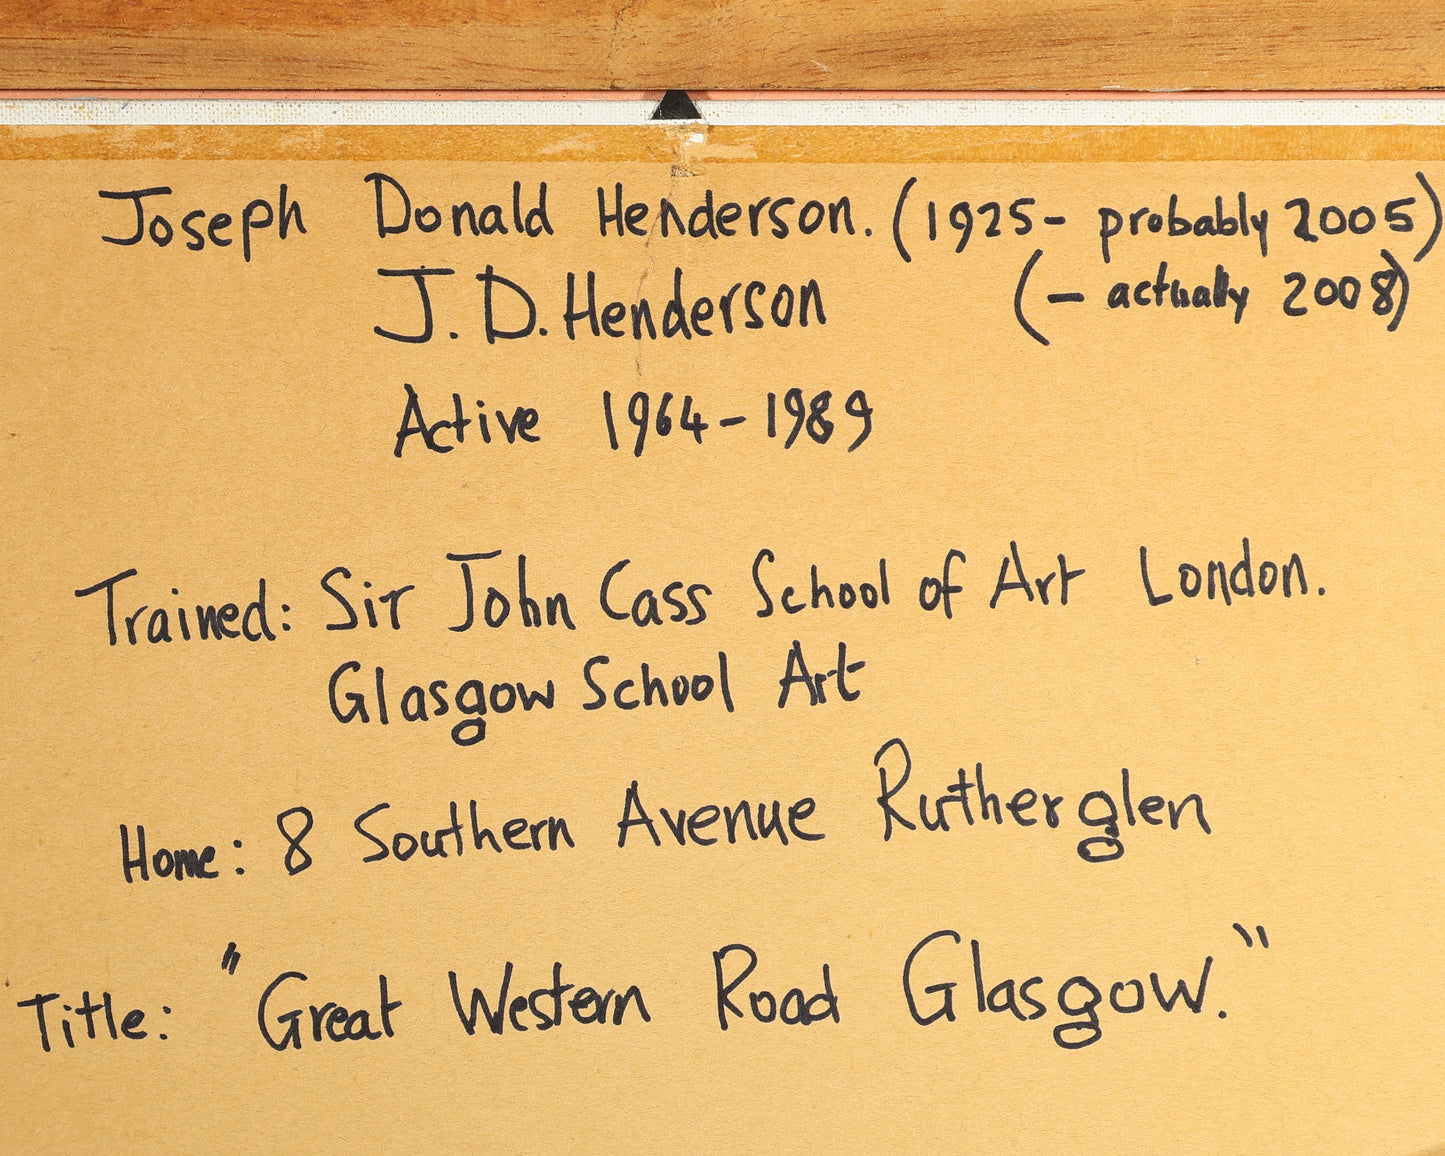 Joseph Donald Henderson. (1925- probably 2005)
J. D. Henderson (- actually 2008)
Active 1964-1989
Trained: Sir John Cass School of Art London.
Glasgow School Art
Home: 8 Southern Avenue Rutherglen
Title: "Great Western Road Glasgow."